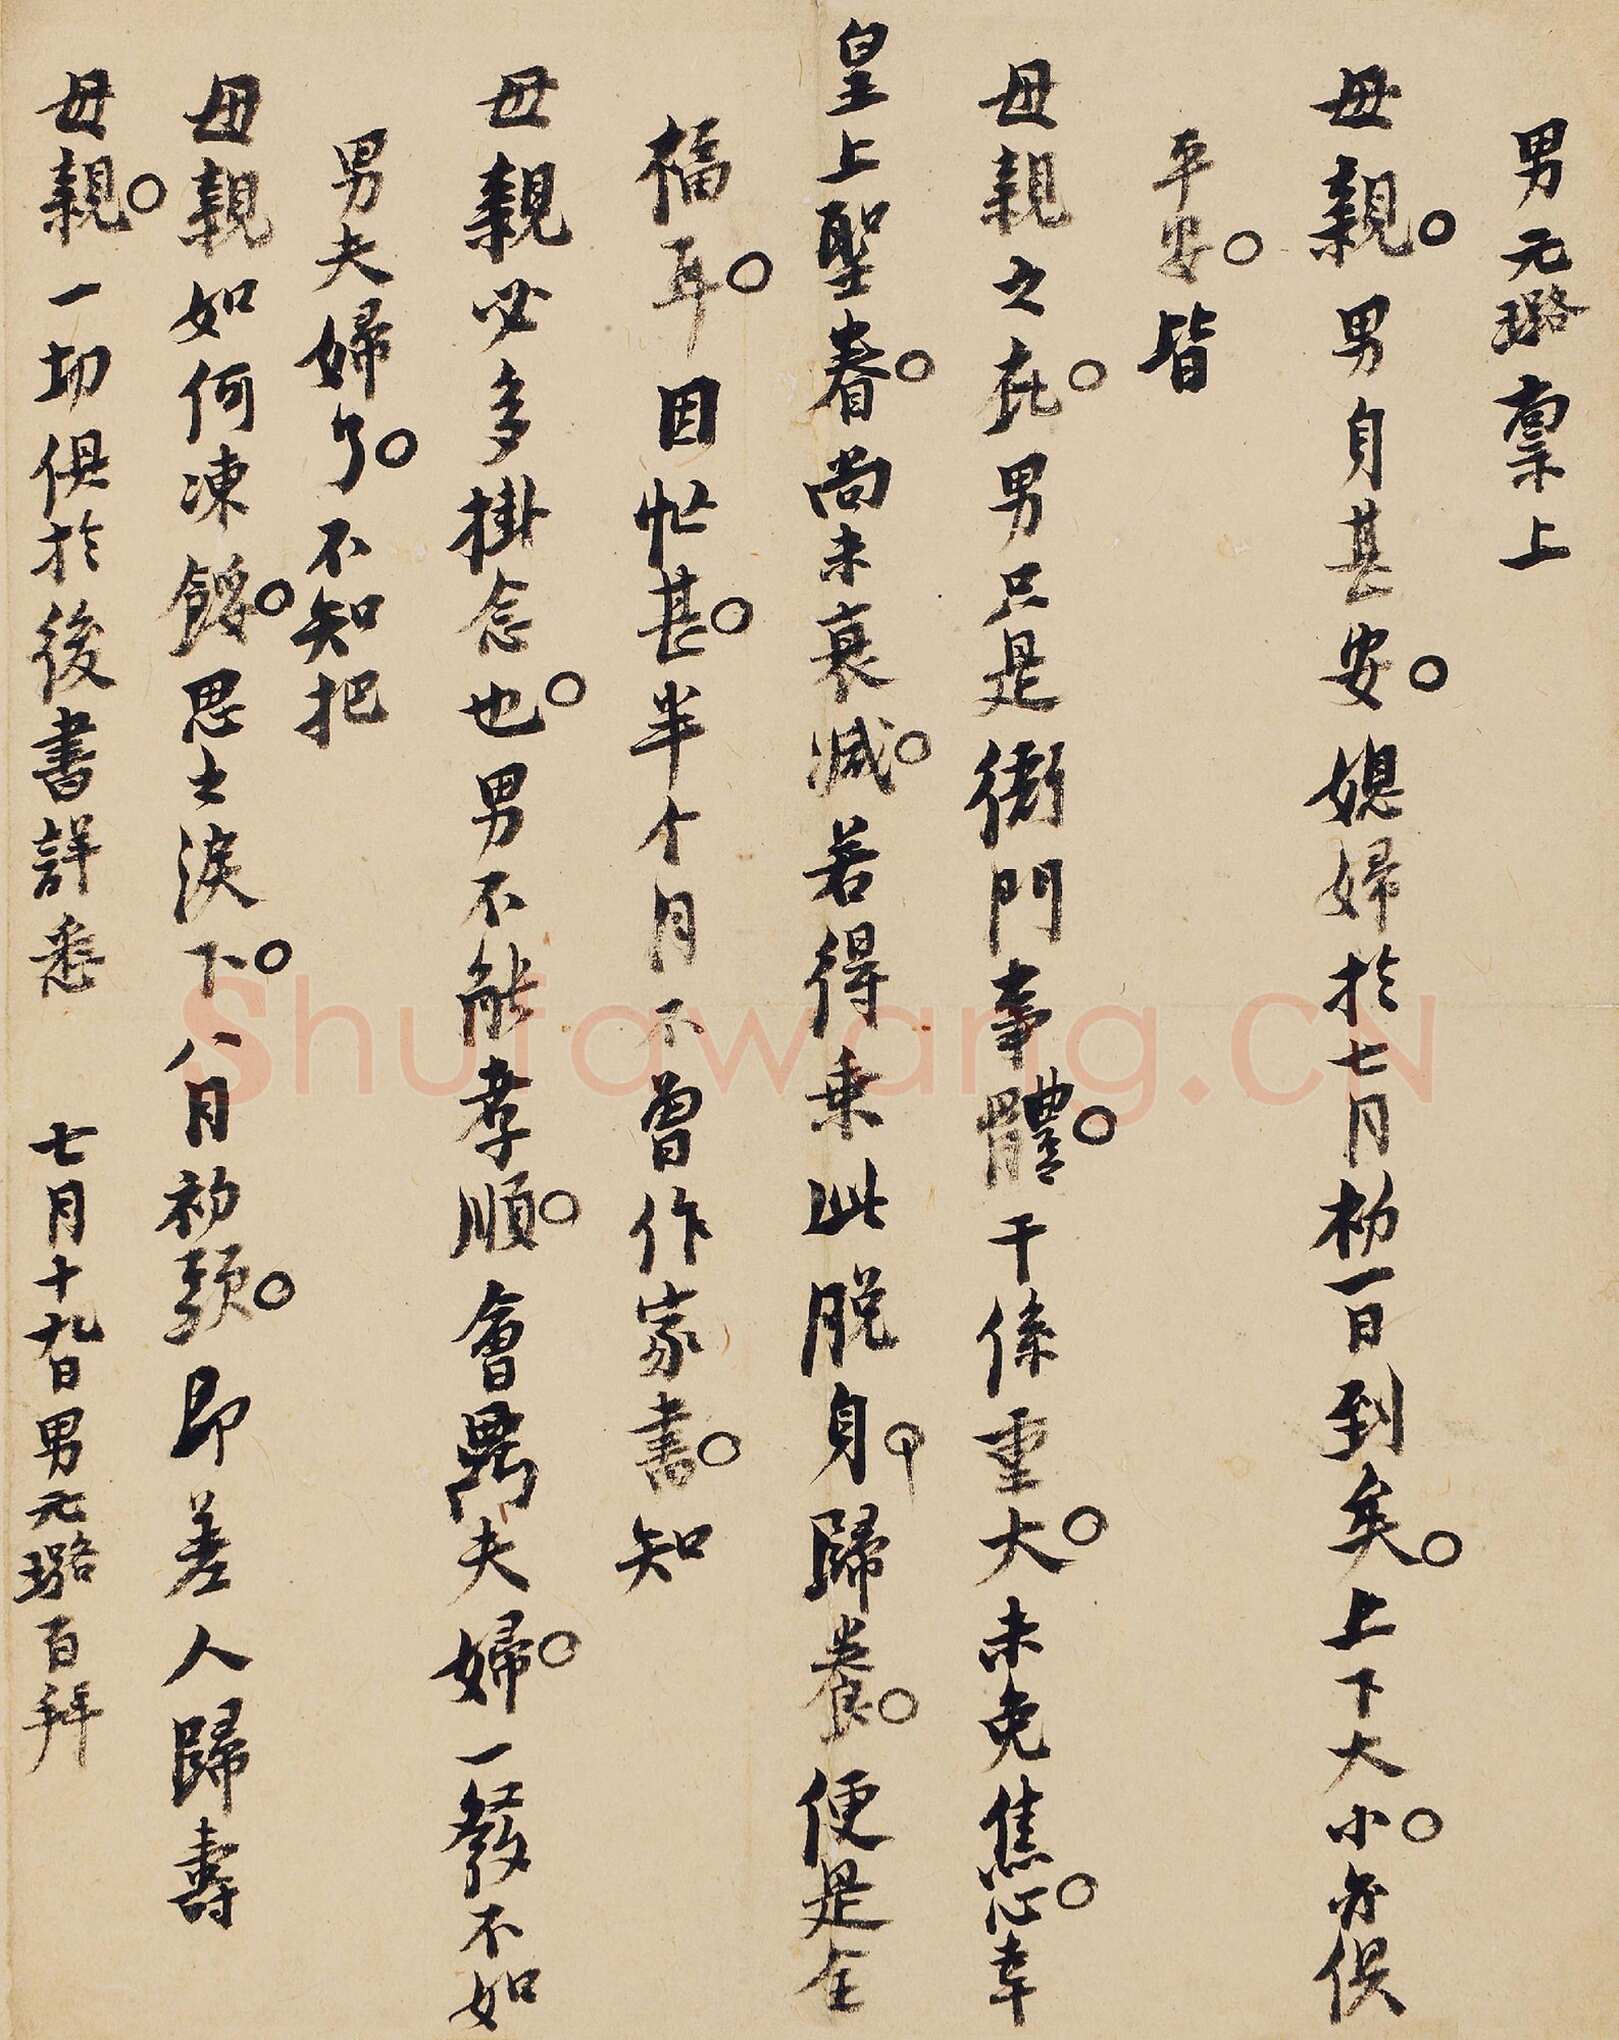 男元璐稟上
母親。男自甚安。媳婦於七月初一日到矣。上下大小。亦俱
平安。皆
母親之庇。男只是衙門事體。干係重大。未免焦心。幸
皇上聖眷。尚未衰減。若得乘此脫身。歸養。便是全
福耳。因忙甚。半个月不曾作家書。知
母親必多掛念也。男不能孝順。會鼎夫婦。一發不如
男夫婦了。不知把
母親如何凍餒。思之淚下。八月初頭。即差人歸壽
母親。一切俱於後書詳悉 七月十九日男元璐百拜
Shufawang.CN